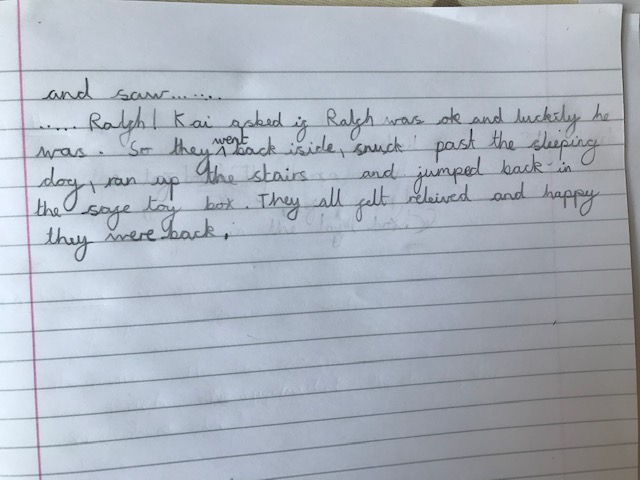 and saw.......
..... Ralph! Kai asked if Ralph was ok and luckily he
was. So they went back iside, snuck past the sleeping
dog, ran up the stairs and jumped back in
the safe toy box. They all felt releived and happy
they were back.